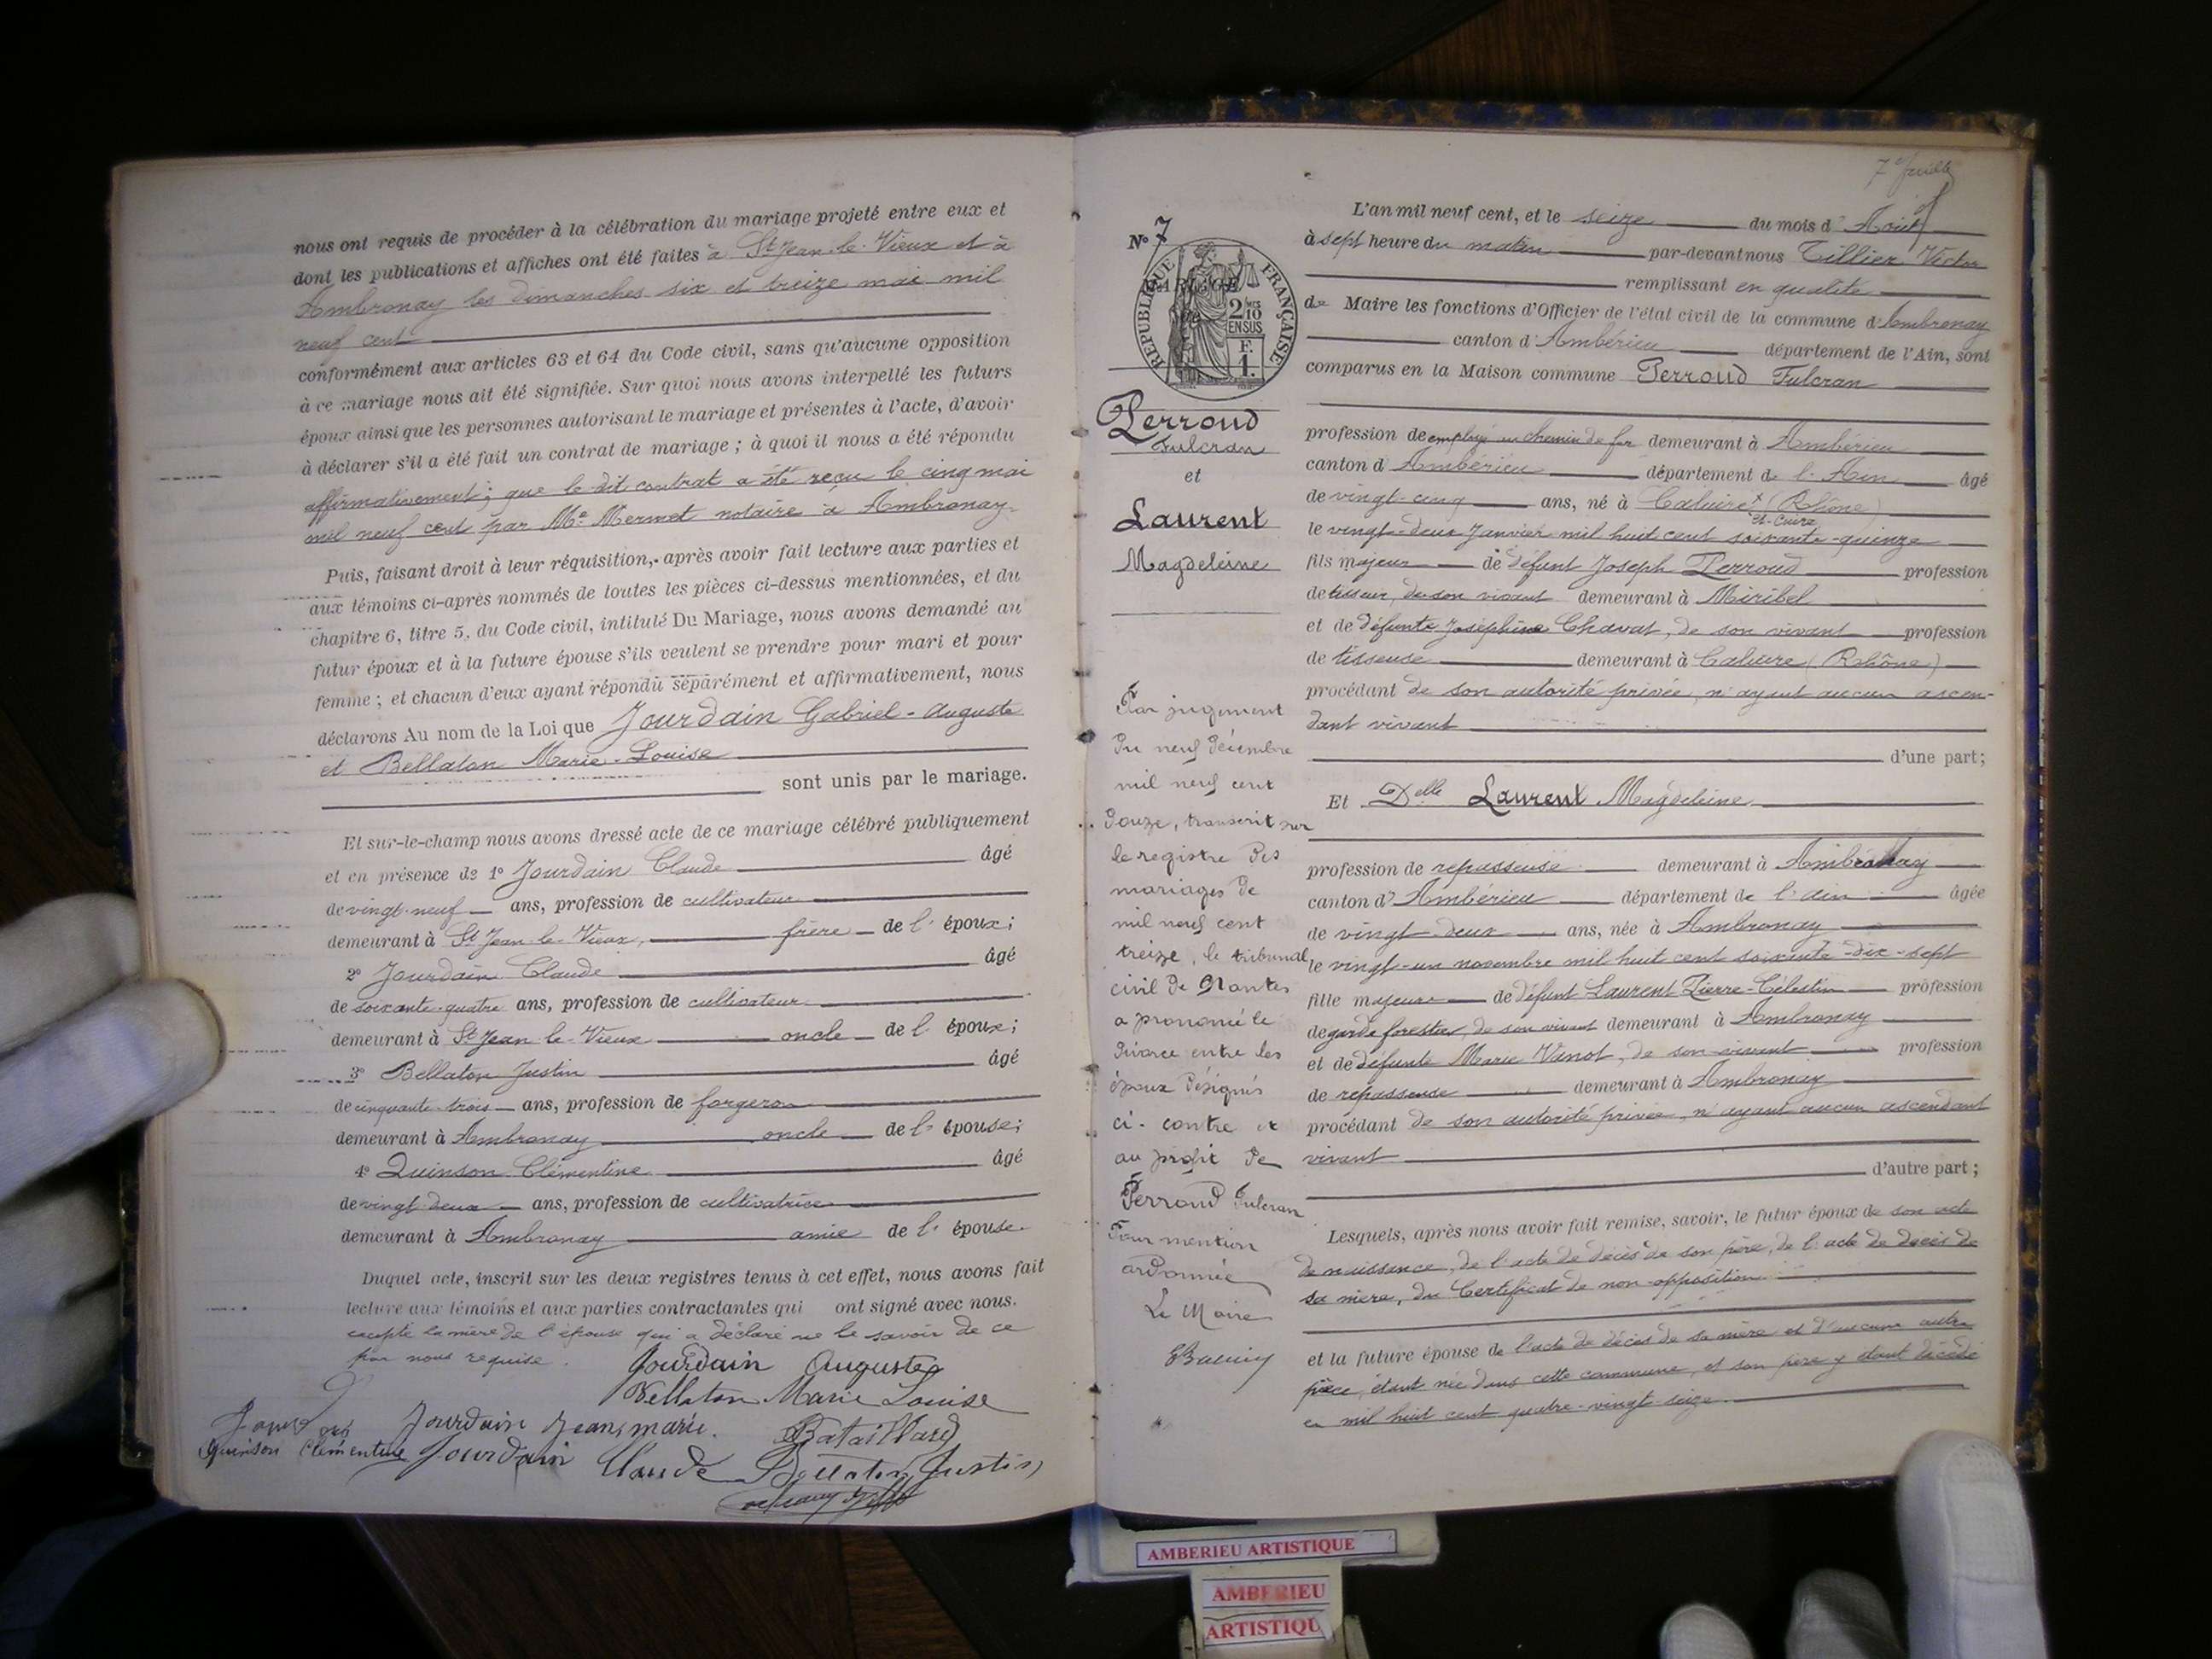 nous ont requis de procéder à la célébration du mariage projeté entre eux et
dont les publications et affiches ont été faites à St Jean-le-Vieux et à
Ambronay les dimanches six et treize mai mil
neuf cent
conformément aux articles 63 et 64 du Code civil, sans qu'aucune opposition
à ce mariage nous ait été signifiée. Sur quoi nous avons interpellé les futurs
époux ainsi que les personnes autorisant le mariage et présentes à l'acte, d'avoir
à déclarer s'il a été fait un contrat de mariage ; à quoi il nous a été répondu
affirmativement ; que le dit contrat a été reçu le cinq mai
mil neuf cent par Me Mermet notaire à Ambronay
Puis, faisant droit à leur réquisition, après avoir fait lecture aux parties et
aux témoins ci-après nommés de toutes les pièces ci-dessus mentionnées, et du
chapitre 6, titre 5, du Code civil, intitulé Du Mariage, nous avons demandé au
futur époux et à la future épouse s'ils veulent se prendre pour mari et pour
femme ; et chacun d'eux ayant répondu séparément et affirmativement, nous
déclarons Au nom de la Loi que Jourdain Gabriel-Auguste
et Bellaton Marie-Louise
sont unis par le mariage.
Et sur-le-champ nous avons dressé acte de ce mariage célébré publiquement
et en présence de 1° Jourdain Claude âgé
de vingt-neuf ans, profession de cultivateur
demeurant à St Jean-le-Vieux, frère de l'époux ;
2° Jourdain Claude âgé
de soixante-quatre ans, profession de cultivateur
demeurant à St Jean-le-Vieux oncle de l'époux ;
3° Bellaton Justin âgé
de cinquante-trois ans, profession de forgeron
demeurant à Ambronay oncle de l'épouse ;
4° Quinson Clémentine âgé
de vingt-deux ans, profession de cultivatrice
demeurant à Ambronay amie de l'épouse.
Duquel acte, inscrit sur les deux registres tenus à cet effet, nous avons fait
lecture aux témoins et aux parties contractantes qui ont signé avec nous.
excepté la mère de l'épouse qui a déclaré ne le savoir de ce
par nous requise.
Jourdain Auguste
Bellaton Marie Louise
Jourdain Jean marie. Bataillard
Quinson Clémentine Jourdain Claude Bellaton Justin
7e feuillet
N° 7
REPUBLIQUE FRANÇAISE
2/10 EN SUS
F. 1.
Perroud
Fulcran
et
Laurent
Magdeleine
Par jugement
du neuf décembre
mil neuf cent
douze, transcrit sur
le registre des
mariages de
mil neuf cent
treize, le tribunal
civil de Nantes
a prononcé le
divorce entre les
époux désignés
ci-contre et
au profit de
Perroud Fulcran
Pour mention
ordonnée
Le Maire
L'an mil neuf cent, et le seize du mois d'Août
à sept heure du matin par-devant nous Tillier Victor
remplissant en qualité
de Maire les fonctions d'Officier de l'état civil de la commune d'Ambronay
canton d'Ambérieu département de l'Ain, sont
comparus en la Maison commune Perroud Fulcran
profession de employé au chemin de fer demeurant à Ambérieu
canton d'Ambérieu département de l'Ain âgé
de vingt-cinq ans, né à Caluire x (Rhône)
et-Cuire
le vingt-deux Janvier mil huit cent soixante-quinze
fils majeur de défunt Joseph Perroud profession
de tisseur, de son vivant demeurant à Miribel
et de défunte Joséphine Chavat, de son vivant profession
de tisseuse demeurant à Caluire (Rhône)
procédant de son autorité privée, n'ayant aucun ascen-
dant vivant
d'une part ;
Et Delle Laurent Magdeleine
profession de repasseuse demeurant à Ambronay
canton d'Ambérieu département de l'ain âgée
de vingt-deux ans, née à Ambronay
le vingt-un novembre mil huit cent soixante-dix-sept
fille majeure de défunt Laurent Pierre-Célestin profession
de garde forestier, de son vivant demeurant à Ambronay
et de défunte Marie Vanot, de son vivant profession
de repasseuse demeurant à Ambronay
procédant de son autorité privée, n'ayant aucun ascendant
vivant
d'autre part ;
Lesquels, après nous avoir fait remise, savoir, le futur époux de son acte
de naissance, de l'acte de décès de son père, de l'acte de décès de
sa mère, du Certificat de non-opposition
et la future épouse de l'acte de décès de sa mère et d'aucune autre
pièce, étant née dans cette commune, et son père y étant décédé
en mil huit cent quatre-vingt-seize.
AMBERIEU ARTISTIQUE
AMBERIEU
ARTISTIQU